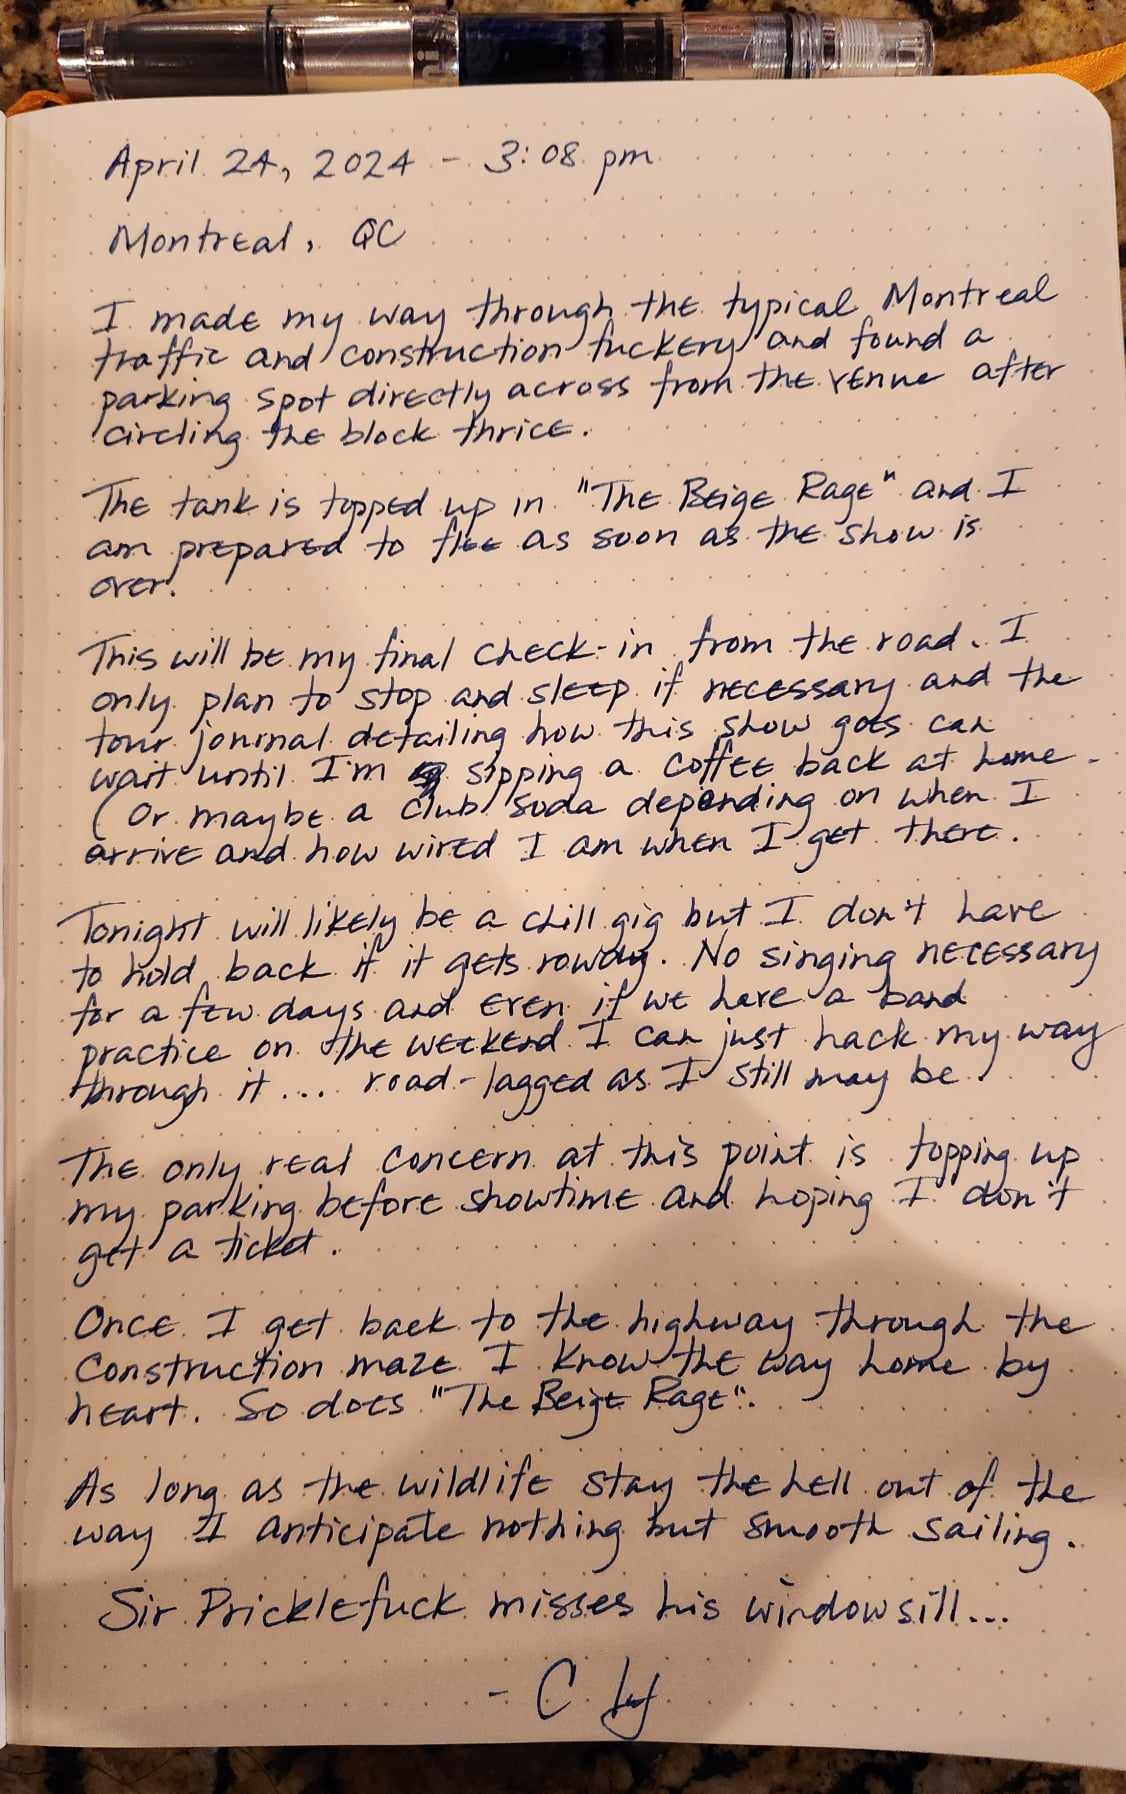 April 24, 2024 - 3:08 pm
Montreal, QC
I made my way through the typical Montreal
traffic and construction fuckery and found a
parking spot directly across from the venue after
circling the block thrice.
The tank is topped up in "The Beige Rage" and I
am prepared to flee as soon as the show is
over.
This will be my final check-in from the road. I
only plan to stop and sleep if necessary and the
tour journal detailing how this show goes can
wait until I'm sipping a coffee back at home.
(Or maybe a club soda depending on when I
arrive and how wired I am when I get there.
Tonight will likely be a chill gig but I don't have
to hold back if it gets rowdy. No singing necessary
for a few days and even if we have a band
practice on the weekend I can just hack my way
through it ... road-lagged as I still may be.
The only real concern at this point is topping up
my parking before showtime and hoping I don't
get a ticket.
Once I get back to the highway through the
construction maze I know the way home by
heart. So does "The Beige Rage".
As long as the wildlife stay the hell out of the
way I anticipate nothing but smooth sailing.
Sir Pricklefuck misses his windowsill...
- C